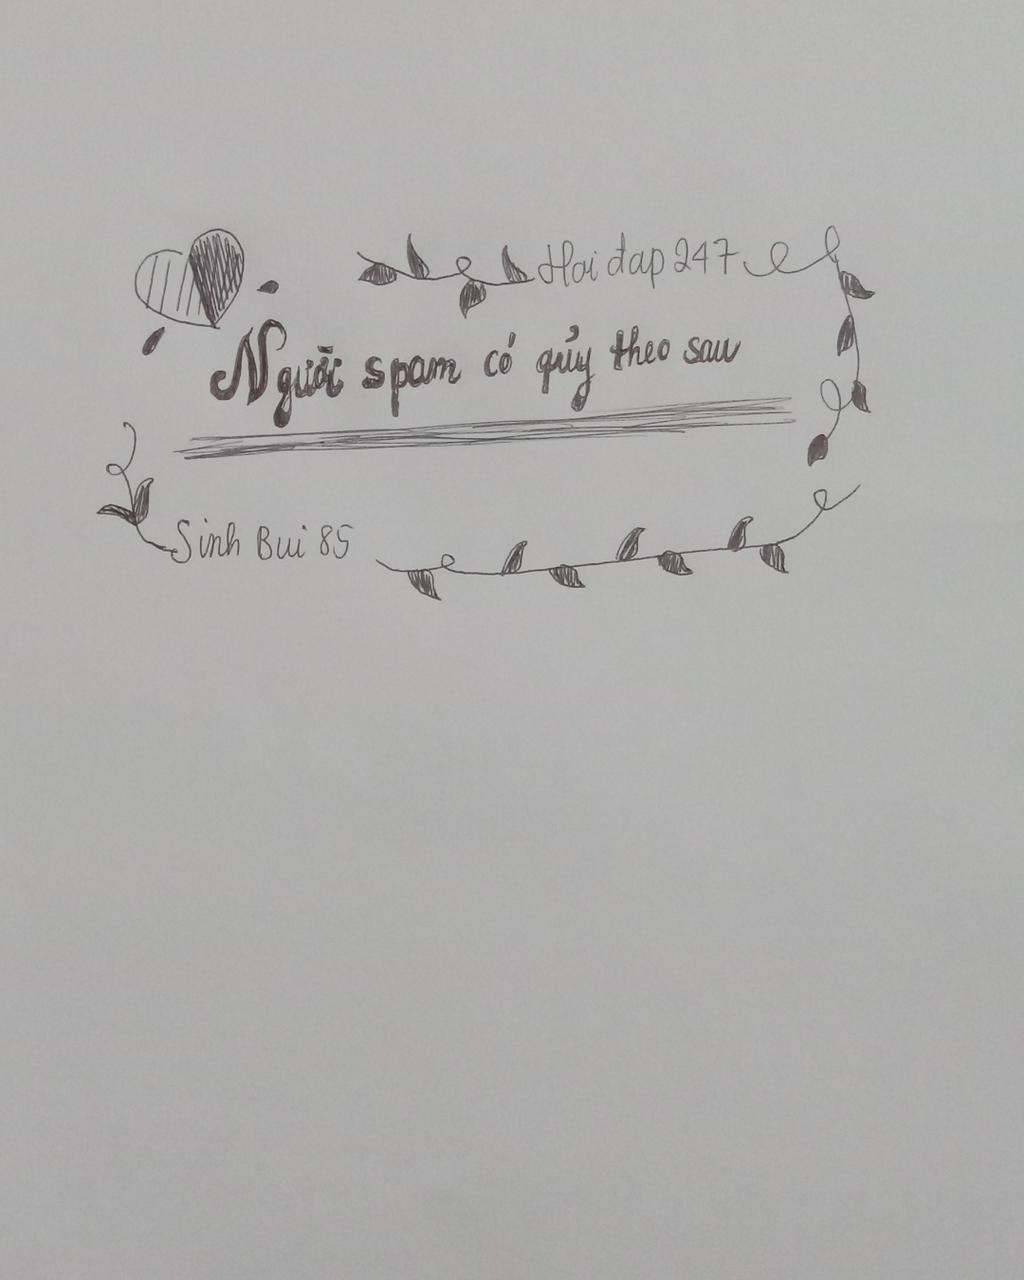 Hoi đap 247
Người spam có qủy theo sau
Sinh Bui 85